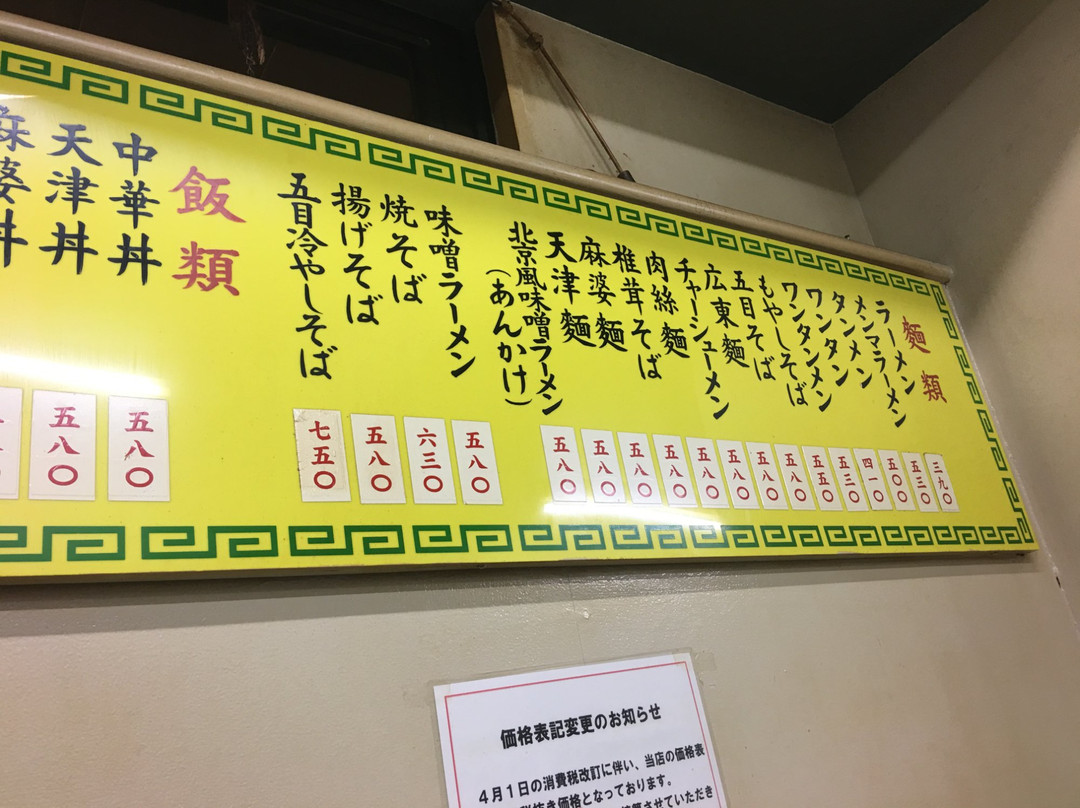 麵類
ラーメン
メンマラーメン
タンメン
ワンタン
ワンタンメン
もやしそば
五目そば
広東麵
チャーシューメン
肉絲麵
椎茸そば
麻婆麵
天津麵
北京風味噌ラーメン
（あんかけ）
味噌ラーメン
焼そば
揚げそば
五目冷やしそば
三九〇
五三〇
五〇〇
四一〇
五三〇
五五〇
五八〇
五八〇
五八〇
五八〇
五八〇
五八〇
五八〇
五八〇
五八〇
六三〇
五八〇
七五〇
飯類
中華丼
天津丼
麻婆丼
五八〇
五八〇
価格表記変更のお知らせ
4月1日の消費税改訂に伴い、当店の価格表
税抜き価格となっております。
させていただき